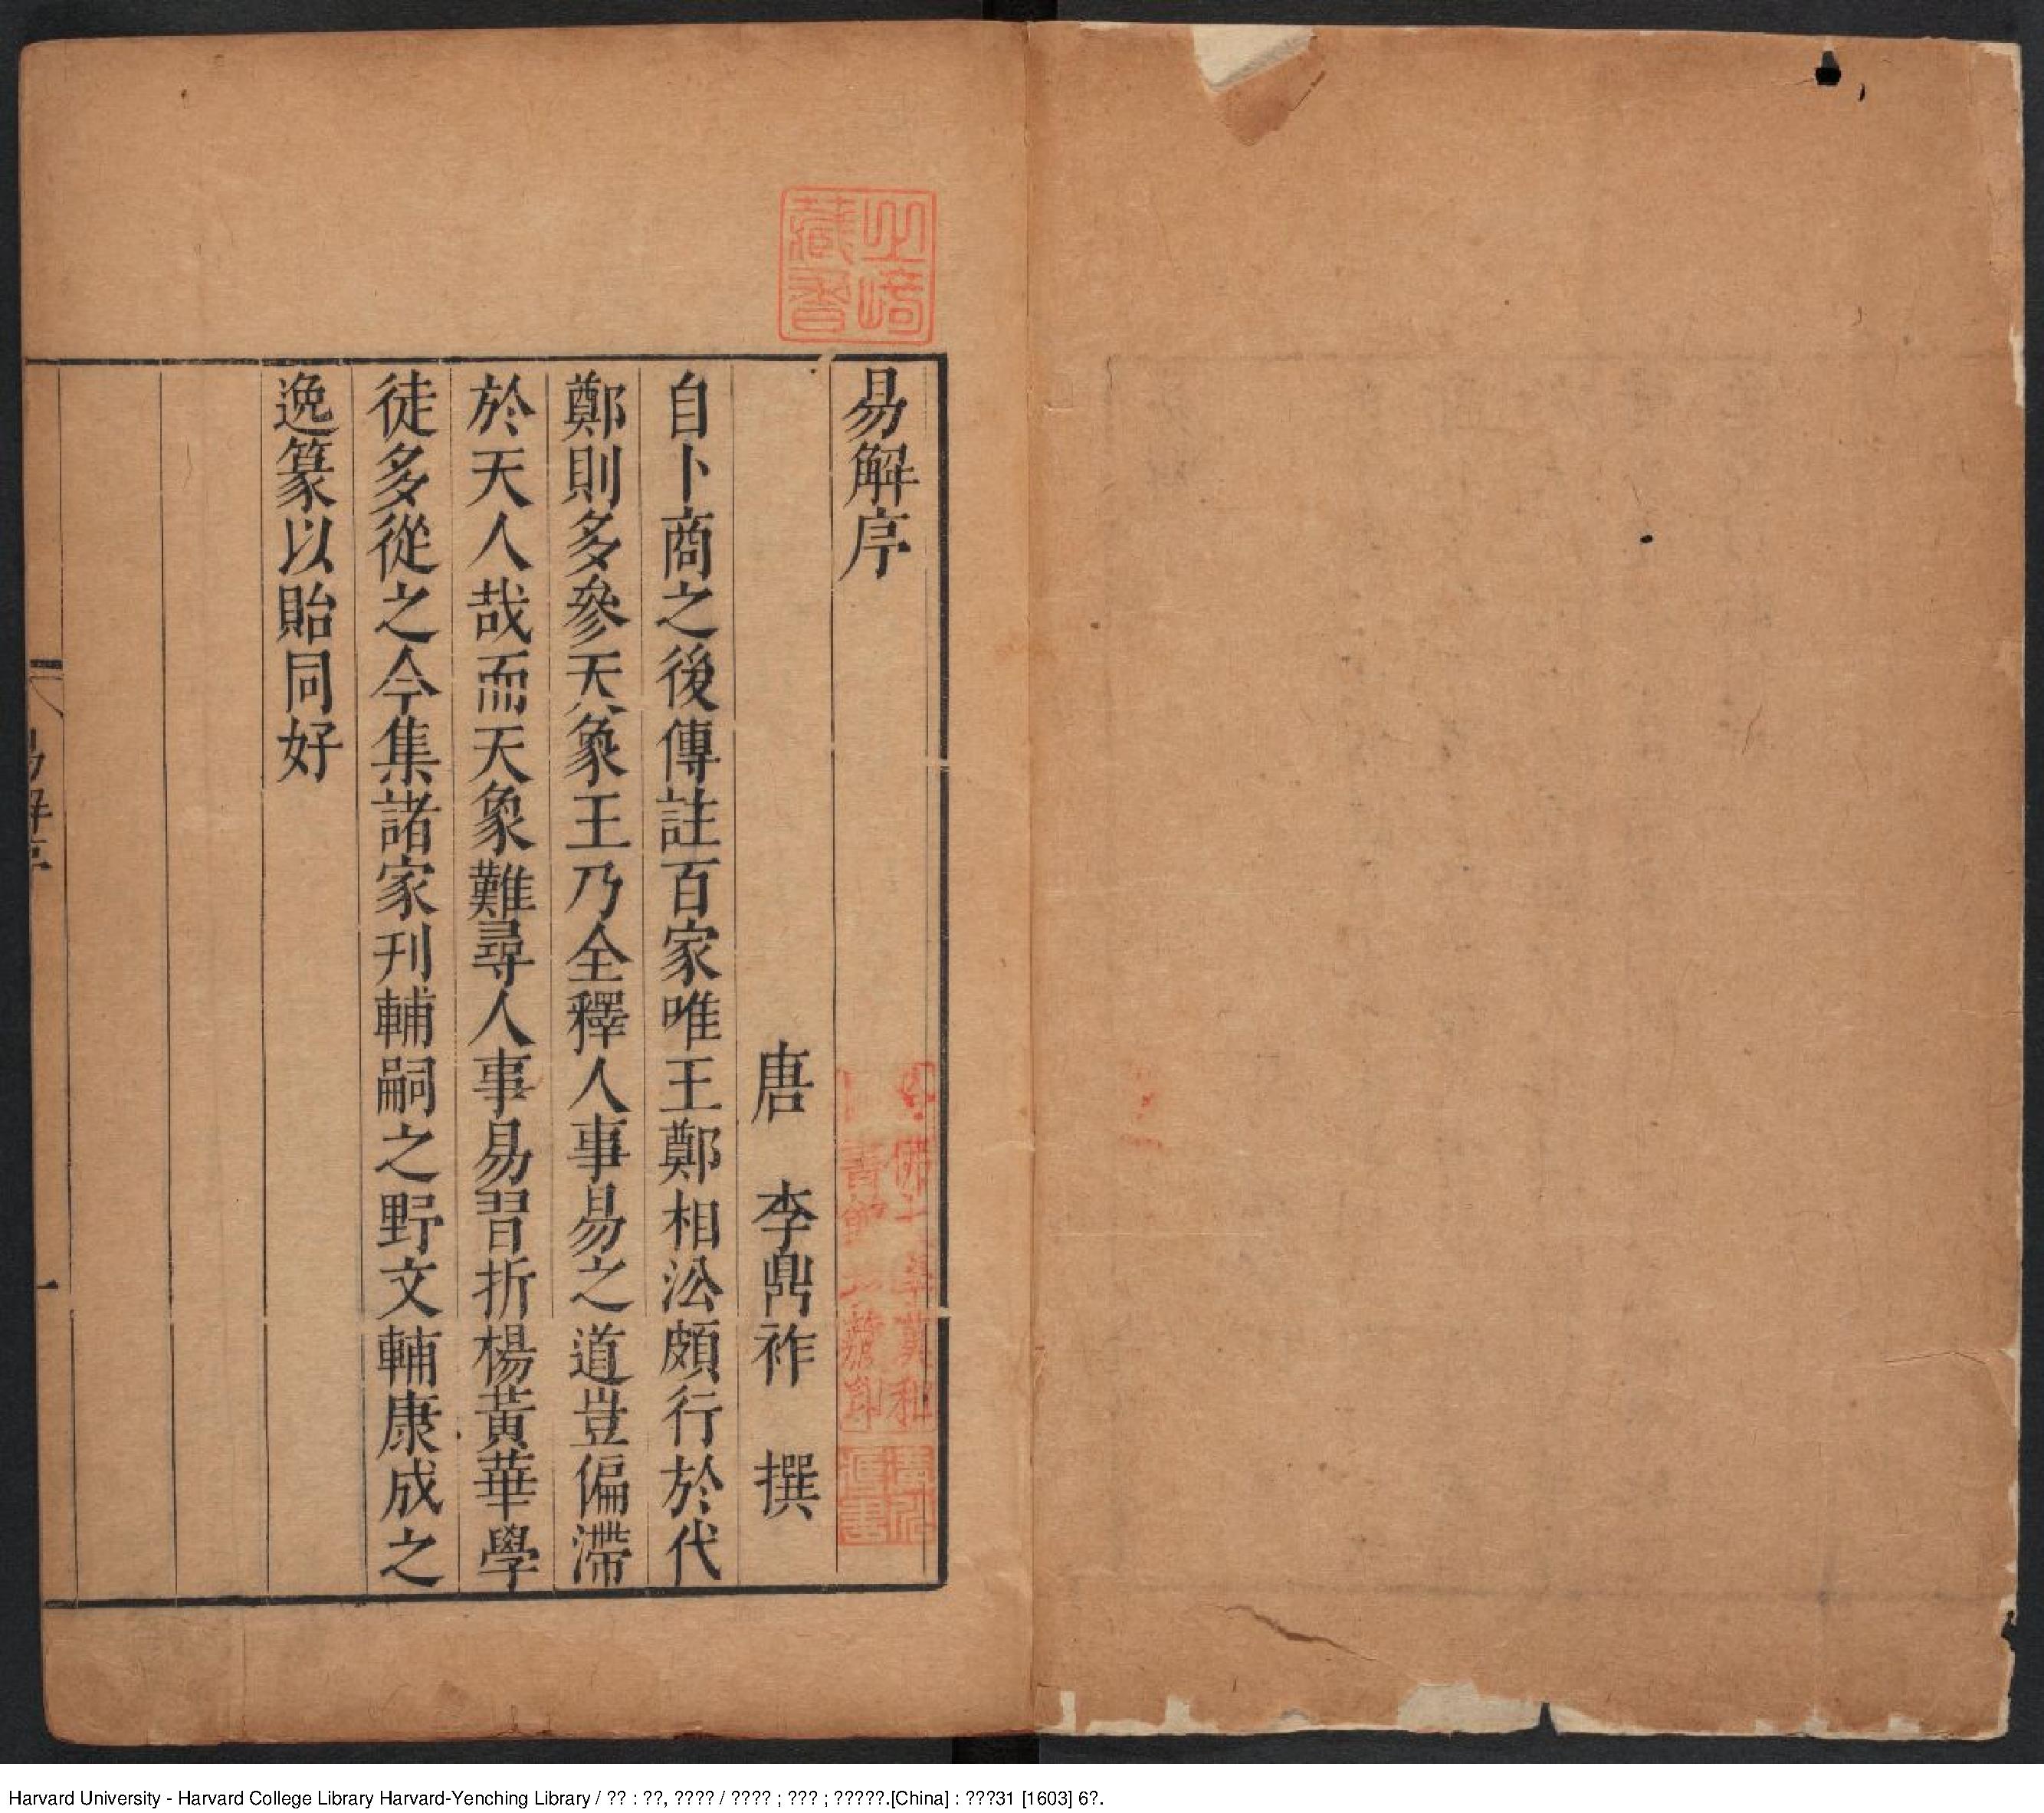 易解序
唐 李鼎祚 撰
自卜商之後傳註百家唯王鄭相沿頗行於代
鄭則多參天象王乃全釋人事易之道豈偏滯
於天人哉而天象難尋人事易習折楊黃華學
徒多從之今集諸家刊輔嗣之野文輔康成之
逸篆以貽同好
易解序
一
藏書
Harvard University - Harvard College Library Harvard-Yenching Library / ?? : ??, ???? / ???? ; ??? ; ?????.[China] : ???31 [1603] 6?.